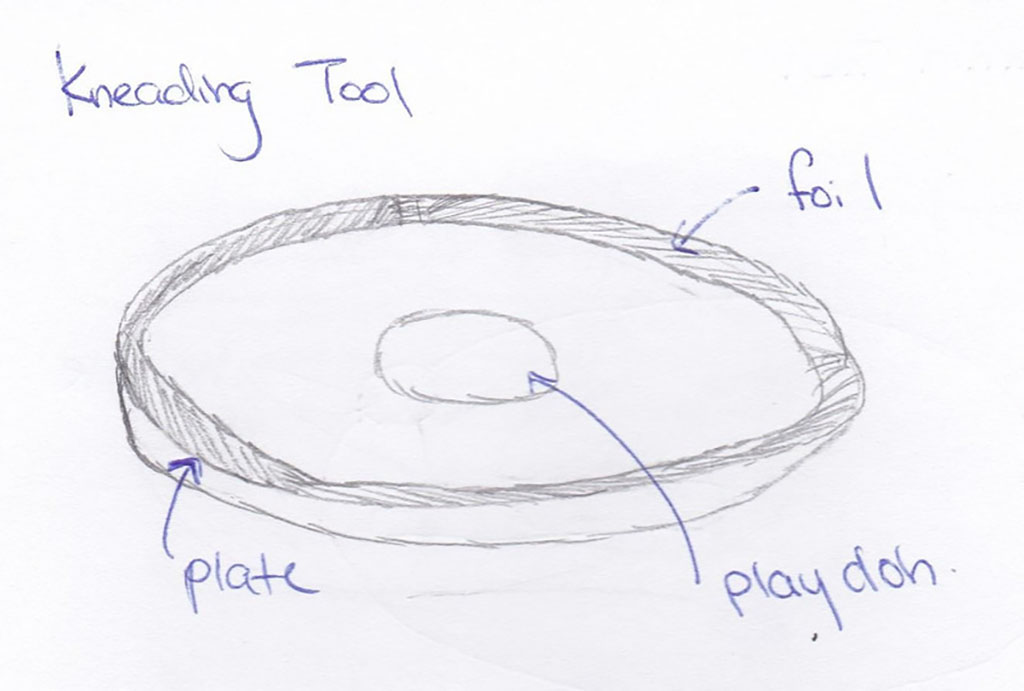 Kneading Tool
foil
plate
play doh.